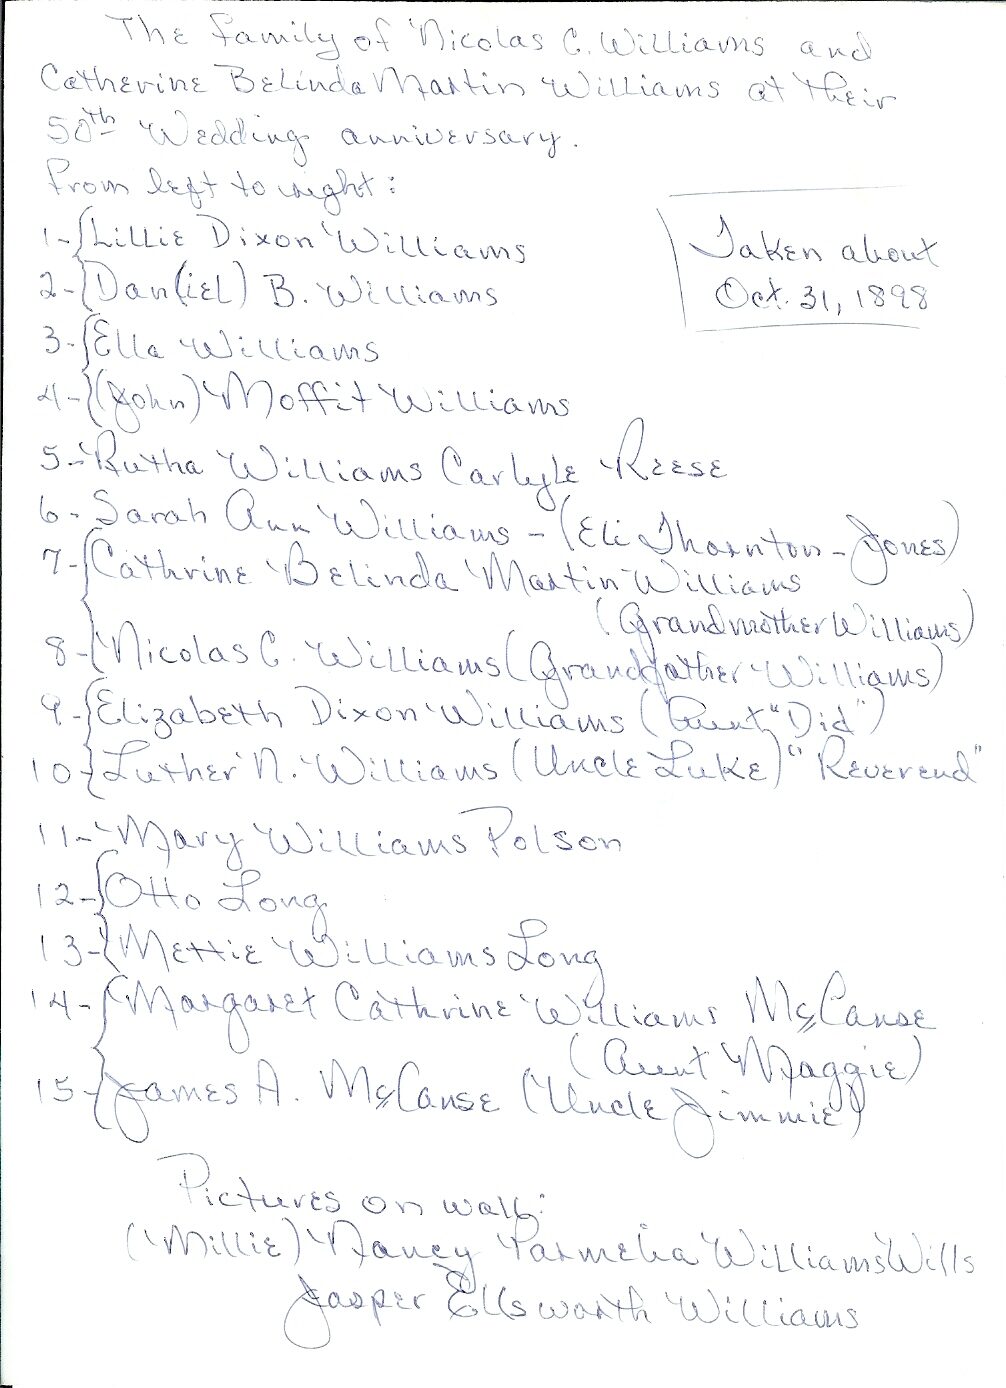 The Family of Nicolas C. Williams and
Catherine Belinda Martin Williams at their
50th Wedding anniversary.
From left to right:
Taken about
Oct. 31, 1898
1- Lillie Dixon Williams
2- Dan(iel) B. Williams
3- Ella Williams
4- (John) Moffit Williams
5- Rutha Williams Carlyle Reese
6- Sarah Ann Williams - (Eli Thornton - Jones)
7- Cathrine Belinda Martin Williams
(Grandmother Williams)
8- Nicolas C. Williams (Grandfather Williams)
9- Elizabeth Dixon Williams (Aunt "Did")
10- Luther N. Williams (Uncle Luke) "Reverend"
11- Mary Williams Polson
12- Otto Long
13- Mettie Williams Long
14- Margaret Cathrine Williams McCanse
(Aunt Maggie)
15- James A. McCanse (Uncle Jimmie)
Pictures on wall:
(Millie) Nancy Parmelia Williams Wills
Jasper Ellsworth Williams